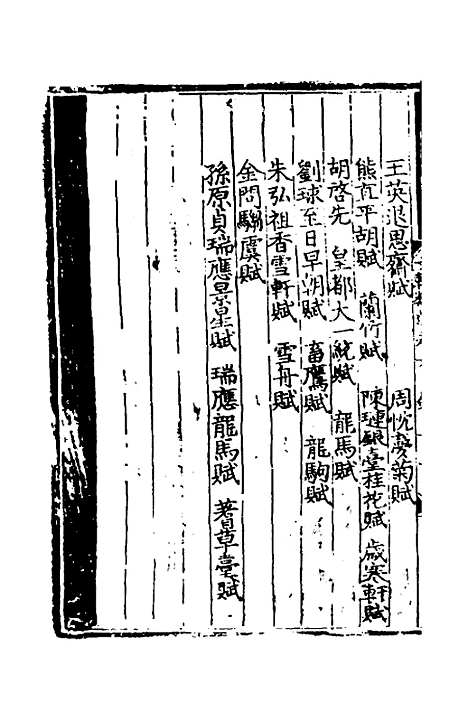 王英退思齋賦　周忱愛菊賦
熊直平胡賦　蘭竹賦　陳璉銀臺桂花賦　歲寒軒賦
胡啓先　皇都大一統賦　龍馬賦
劉球至日早朝賦　畜鷹賦　龍駒賦
朱弘祖香雪軒賦　雪舟賦
金問騶虞賦
孫原貞瑞應景星賦　瑞應龍馬賦　蓍草臺賦